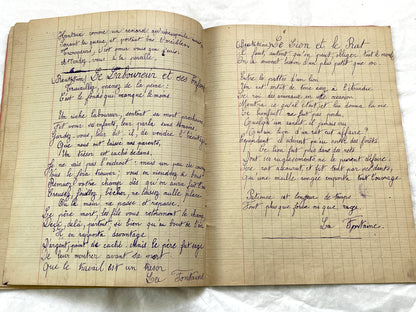 Honteux comme un renard qu'une poule aurait pris
Serrant la queue et portant bas l'oreille
Trompeurs, c'est pour vous que j'écris
Attendez vous à la pareille.
Récitation Le Laboureur et ses Enfants
Travaillez, prenez de la peine:
C'est le fonds qui manque le moins.
Un riche laboureur, sentant sa mort prochaine
Fit venir ses enfants, leur parla sans témoins
Gardez-vous, leur dit-il, de vendre l'héritage
Que nous ont laissé nos parents,
Un trésor est caché dedans,
Je ne sais pas l'endroit: mais un peu de
Vous le fera trouver: vous en viendrez à bout
Remuez votre champ dès qu'on aura fait l'août
Creusez, fouillez, bêchez, ne laissez nulle place
Où la main ne passe et repasse.
Le père mort, les fils vous retournent le champ
Deçà, delà, partout, si bien qu'au bout de l'an
Il en rapporta davantage
D'argent, point de caché. Mais le père fut sage
De leur montrer avant sa mort
Que le travail est un trésor
La Fontaine
Récitation Le Lion et le Rat
Il faut, autant qu'on peut, obliger tout le monde
On a souvent besoin d'un plus petit que soi
Entre les pattes d'un lion
Un rat sortit de terre assez à l'étourdie
Le roi des animaux en cette occasion
Montra ce qu'il était, et lui donna la vie
Ce bienfait ne fut pas perdu
Quelqu'un aurait-il jamais cru
Qu'un lion d'un rat eût affaire?
Cependant il advint qu'au sortir des forêts
Ce lion fut pris dans des rets
Dont ses rugissements ne le purent défaire
Sire rat accourut, et fit tant par ses dents
Qu'une maille rongée emporta tout l'ouvrage.
Patience et longueur de temps
Font plus que force ni que rage.
La Fontaine.